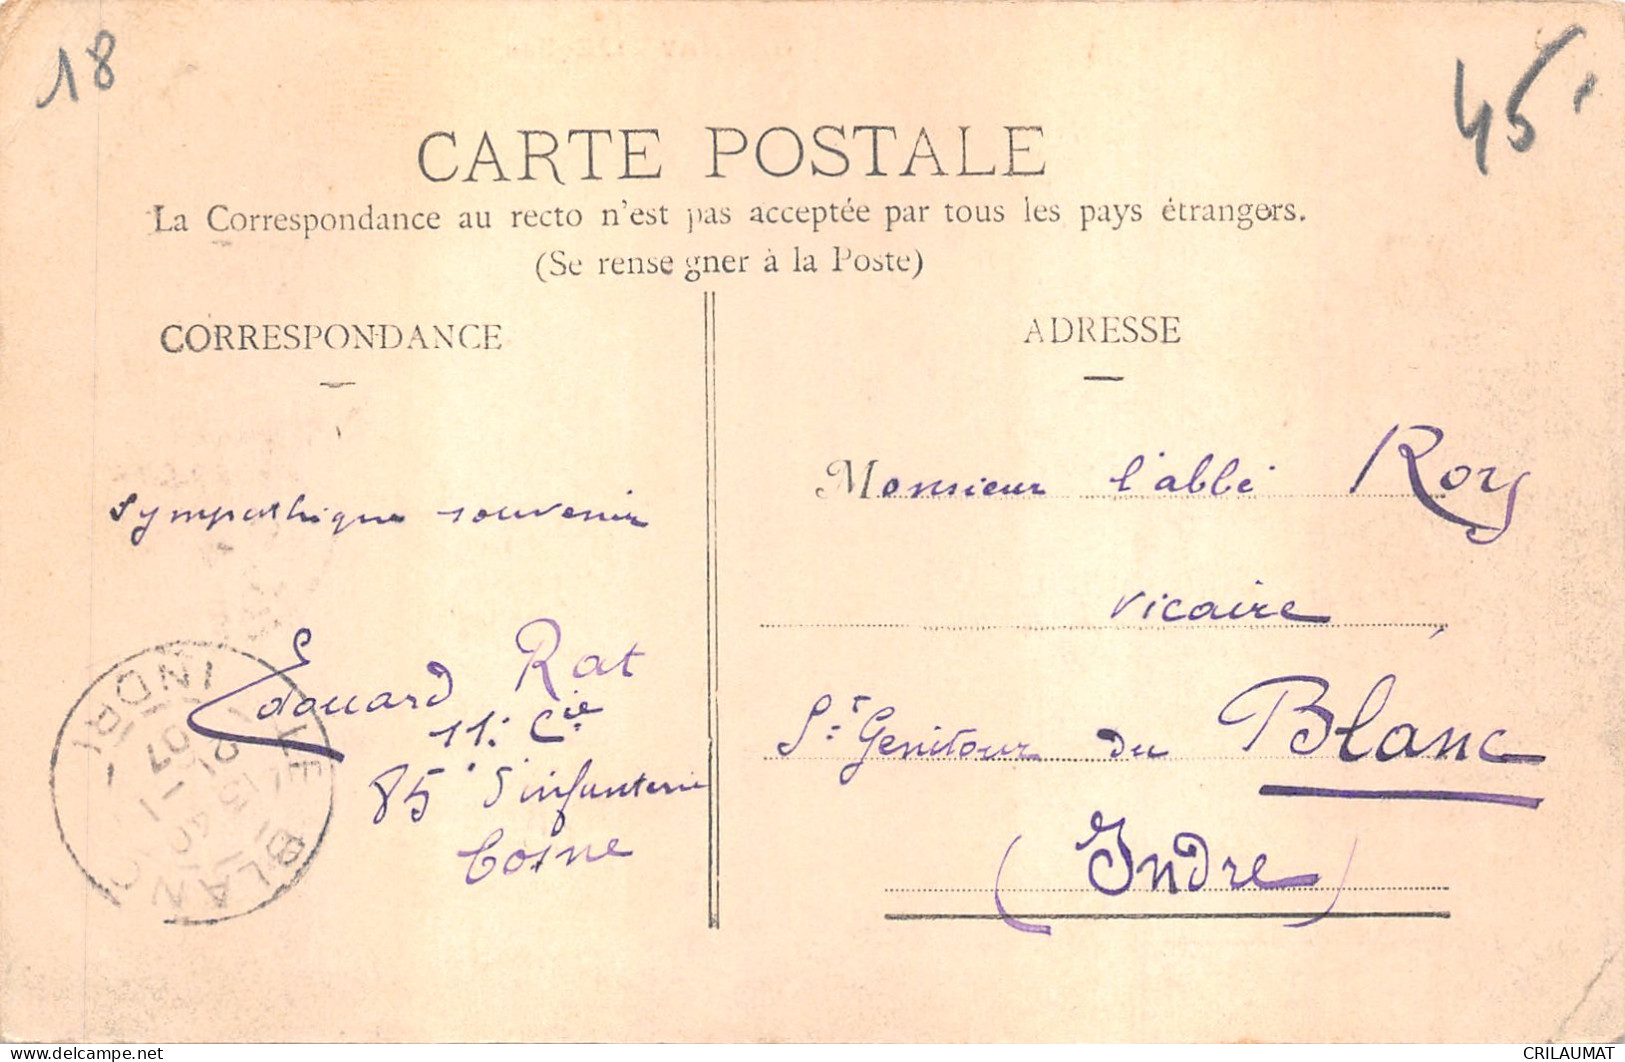 18
45
CARTE POSTALE
La Correspondance au recto n'est pas acceptée par tous les pays étrangers.
(Se rense gner à la Poste)
CORRESPONDANCE
ADRESSE
Sympathique souvenir
Edouard Rat
11: Cie
85e d'infanterie
Cosne
Monsieur l'abbé Roy
vicaire
St Genitour du Blanc
(Indre)
LE BLANC
INDRE
07
CRILAUMAT